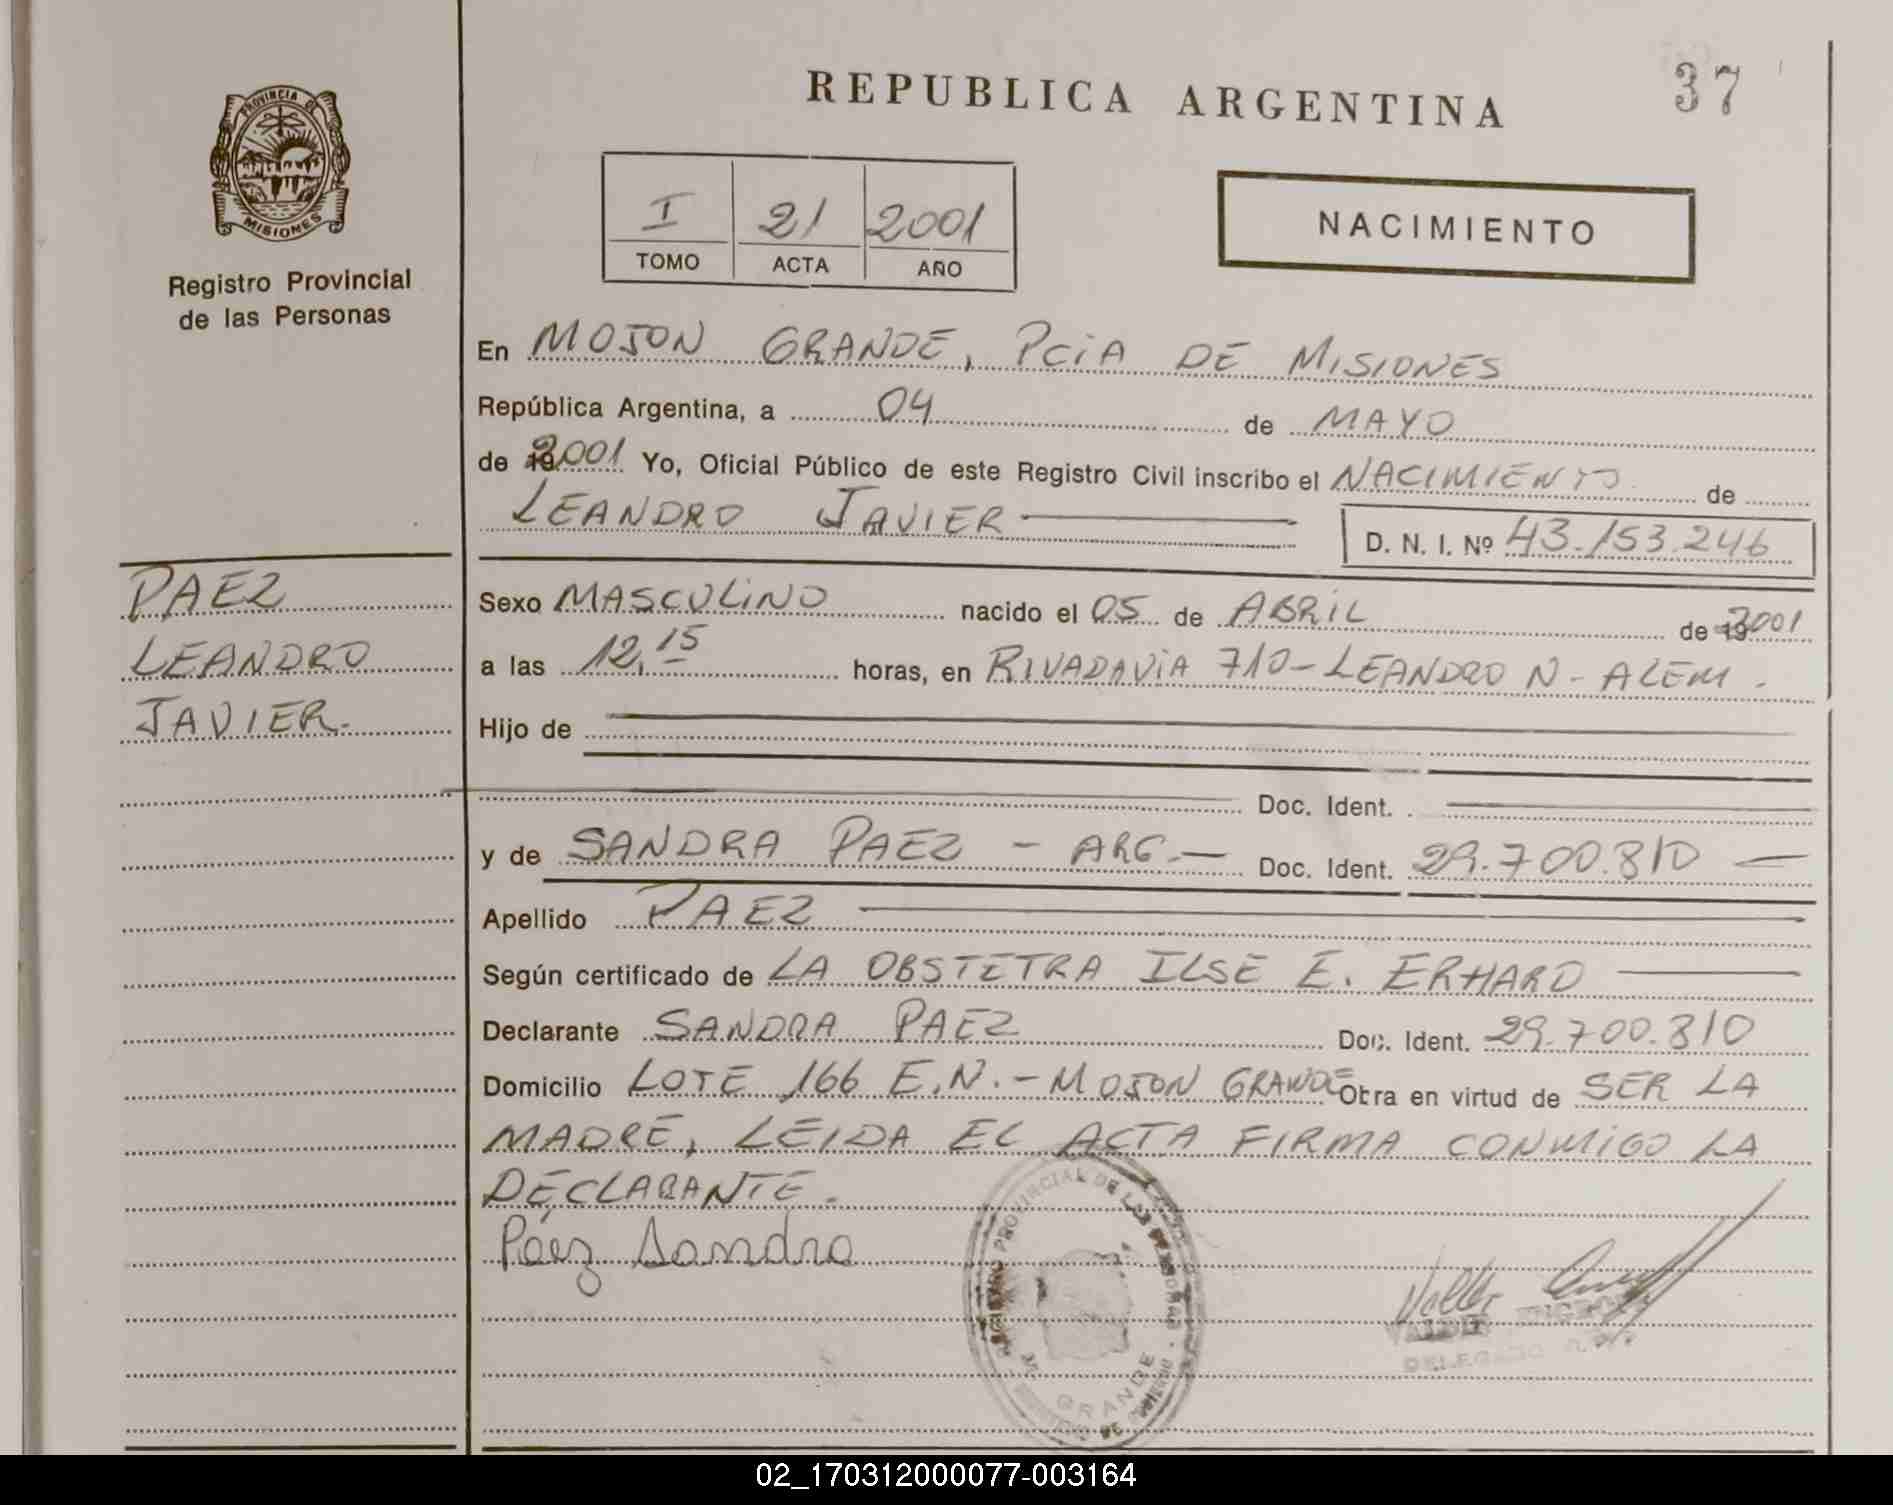 REPUBLICA ARGENTINA
37
PROVINCIA DE MISIONES
Registro Provincial
de las Personas
I 21 2001
TOMO ACTA AÑO
NACIMIENTO
En MOJON GRANDE, PCiA DE MISIONES
República Argentina, a 04 de MAYO
de 2001 Yo, Oficial Público de este Registro Civil inscribo el NACIMIENTO de
LEANDRO JAVIER D. N. I. Nº 43.153.246
PAEZ
LEANDRO
JAVIER.
Sexo MASCULINO nacido el 05 de ABRIL de 2001
a las 12,15 horas, en RIVADAVIA 710-LEANDRO N- ALEM.
Hijo de
Doc. Ident. .
y de SANDRA PAEZ - ARG.- Doc. Ident. 29.700.810 —
Apellido PAEZ
Según certificado de LA OBSTETRA ILSE E. ERHARD
Declarante SANDRA PAEZ Doc. Ident. 29.700.810
Domicilio LOTE 166 E.N.-MOJON GRANDE Obra en virtud de SER LA
MADRE, LEIDA EL ACTA FIRMA CONMIGO LA
DECLARANTE.
Páez Sandra
REGISTRO PROVINCIAL DE LAS PERSONAS
GRANDE
DELEGADO
02_170312000077-003164